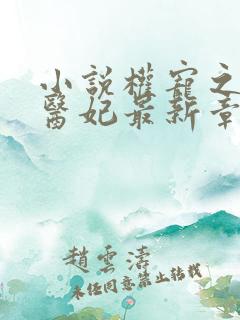 小說權寵之
醫妃最新章
趙雲濤
未經同意禁止轉載